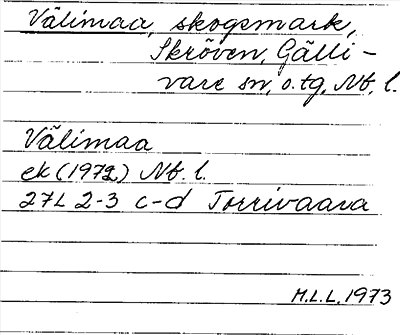 Välimaa, skogsmark,
Skröven, Gälli-
vare sn, o. tg, Nb. l.
Välimaa
ek (1972) Nb. l.
27L 2-3 c-d Torrivaara
M.L.L. 1973